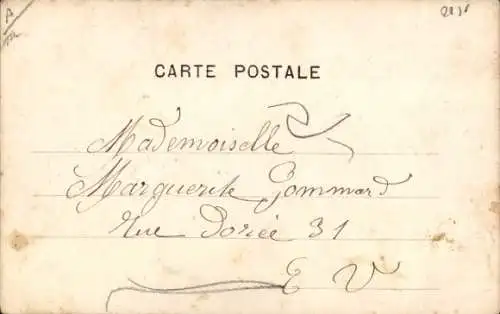 A
CARTE POSTALE
Mademoiselle
Marguerite Gommard
rue Dorée 31
E V